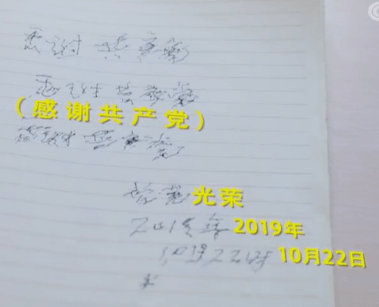 感谢 共产党
感谢 共产党
（感谢共产党）
感谢共产党
光荣
2019年 2019年
10月22日 10月22日